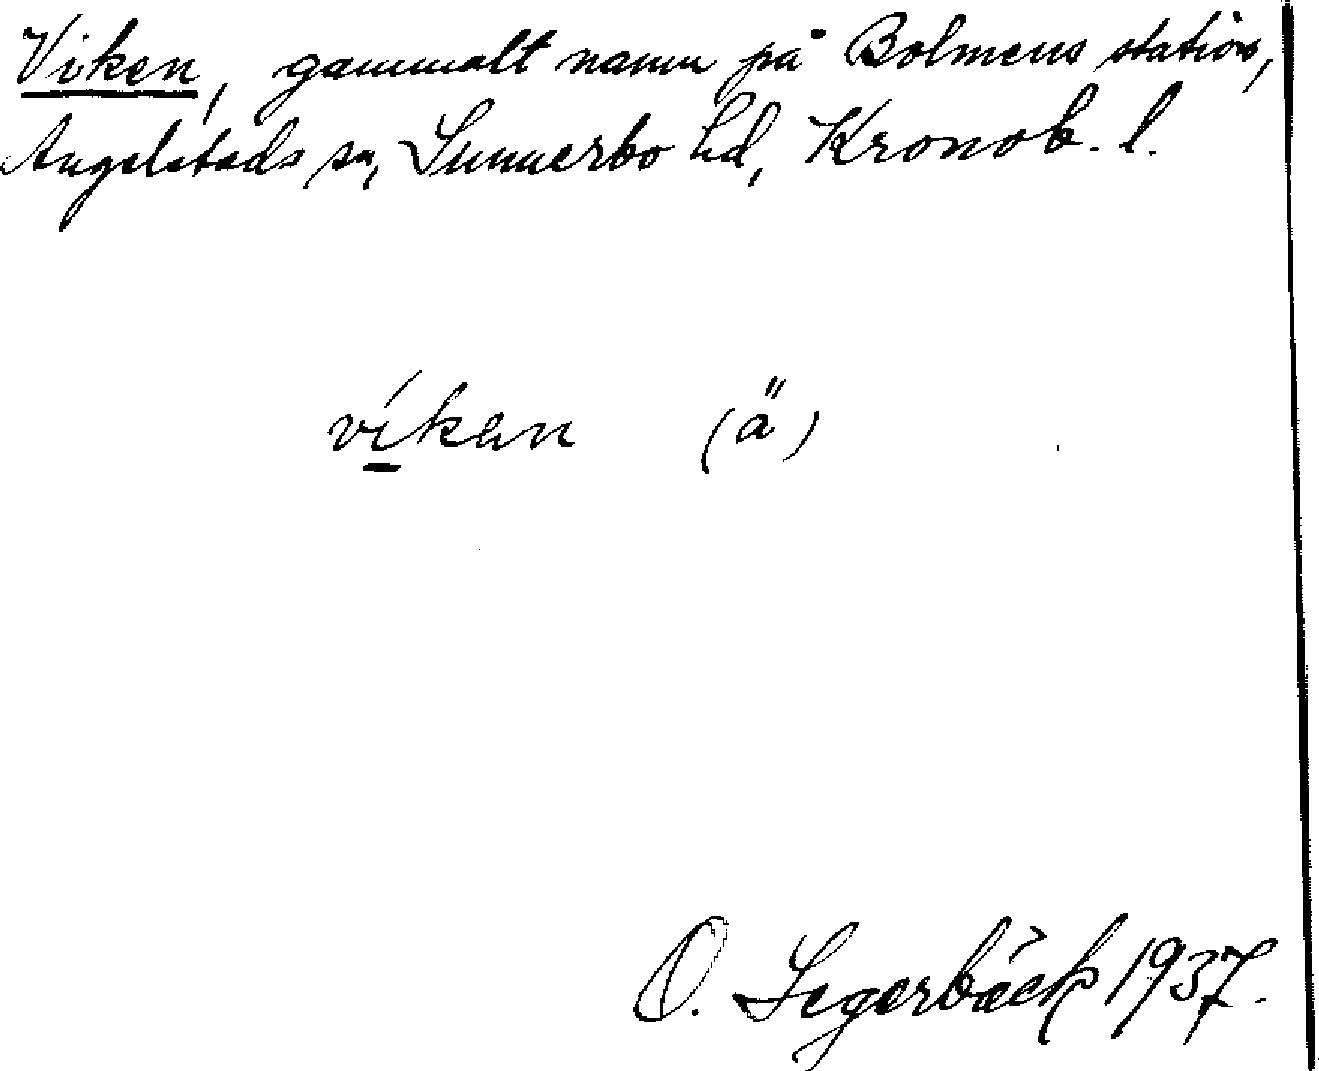 Viken, gammalt namn på Bolmens station,
Angelstads sn, Sunnerbo hd, Kronob. l.
víkən (ä)
O. Segerbäck 1937.